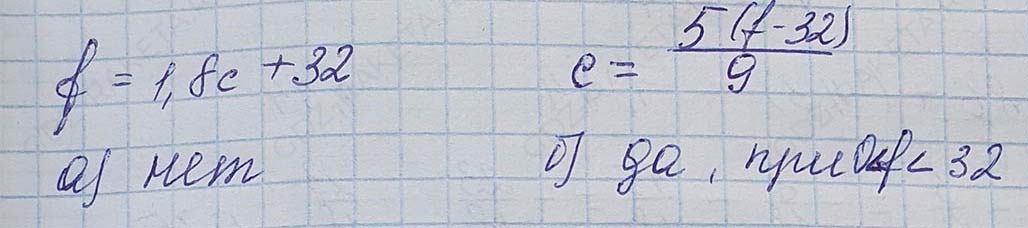 f = 1,8c + 32
c = 5(f-32)/9
а) нет
б) да, при 0<f<32